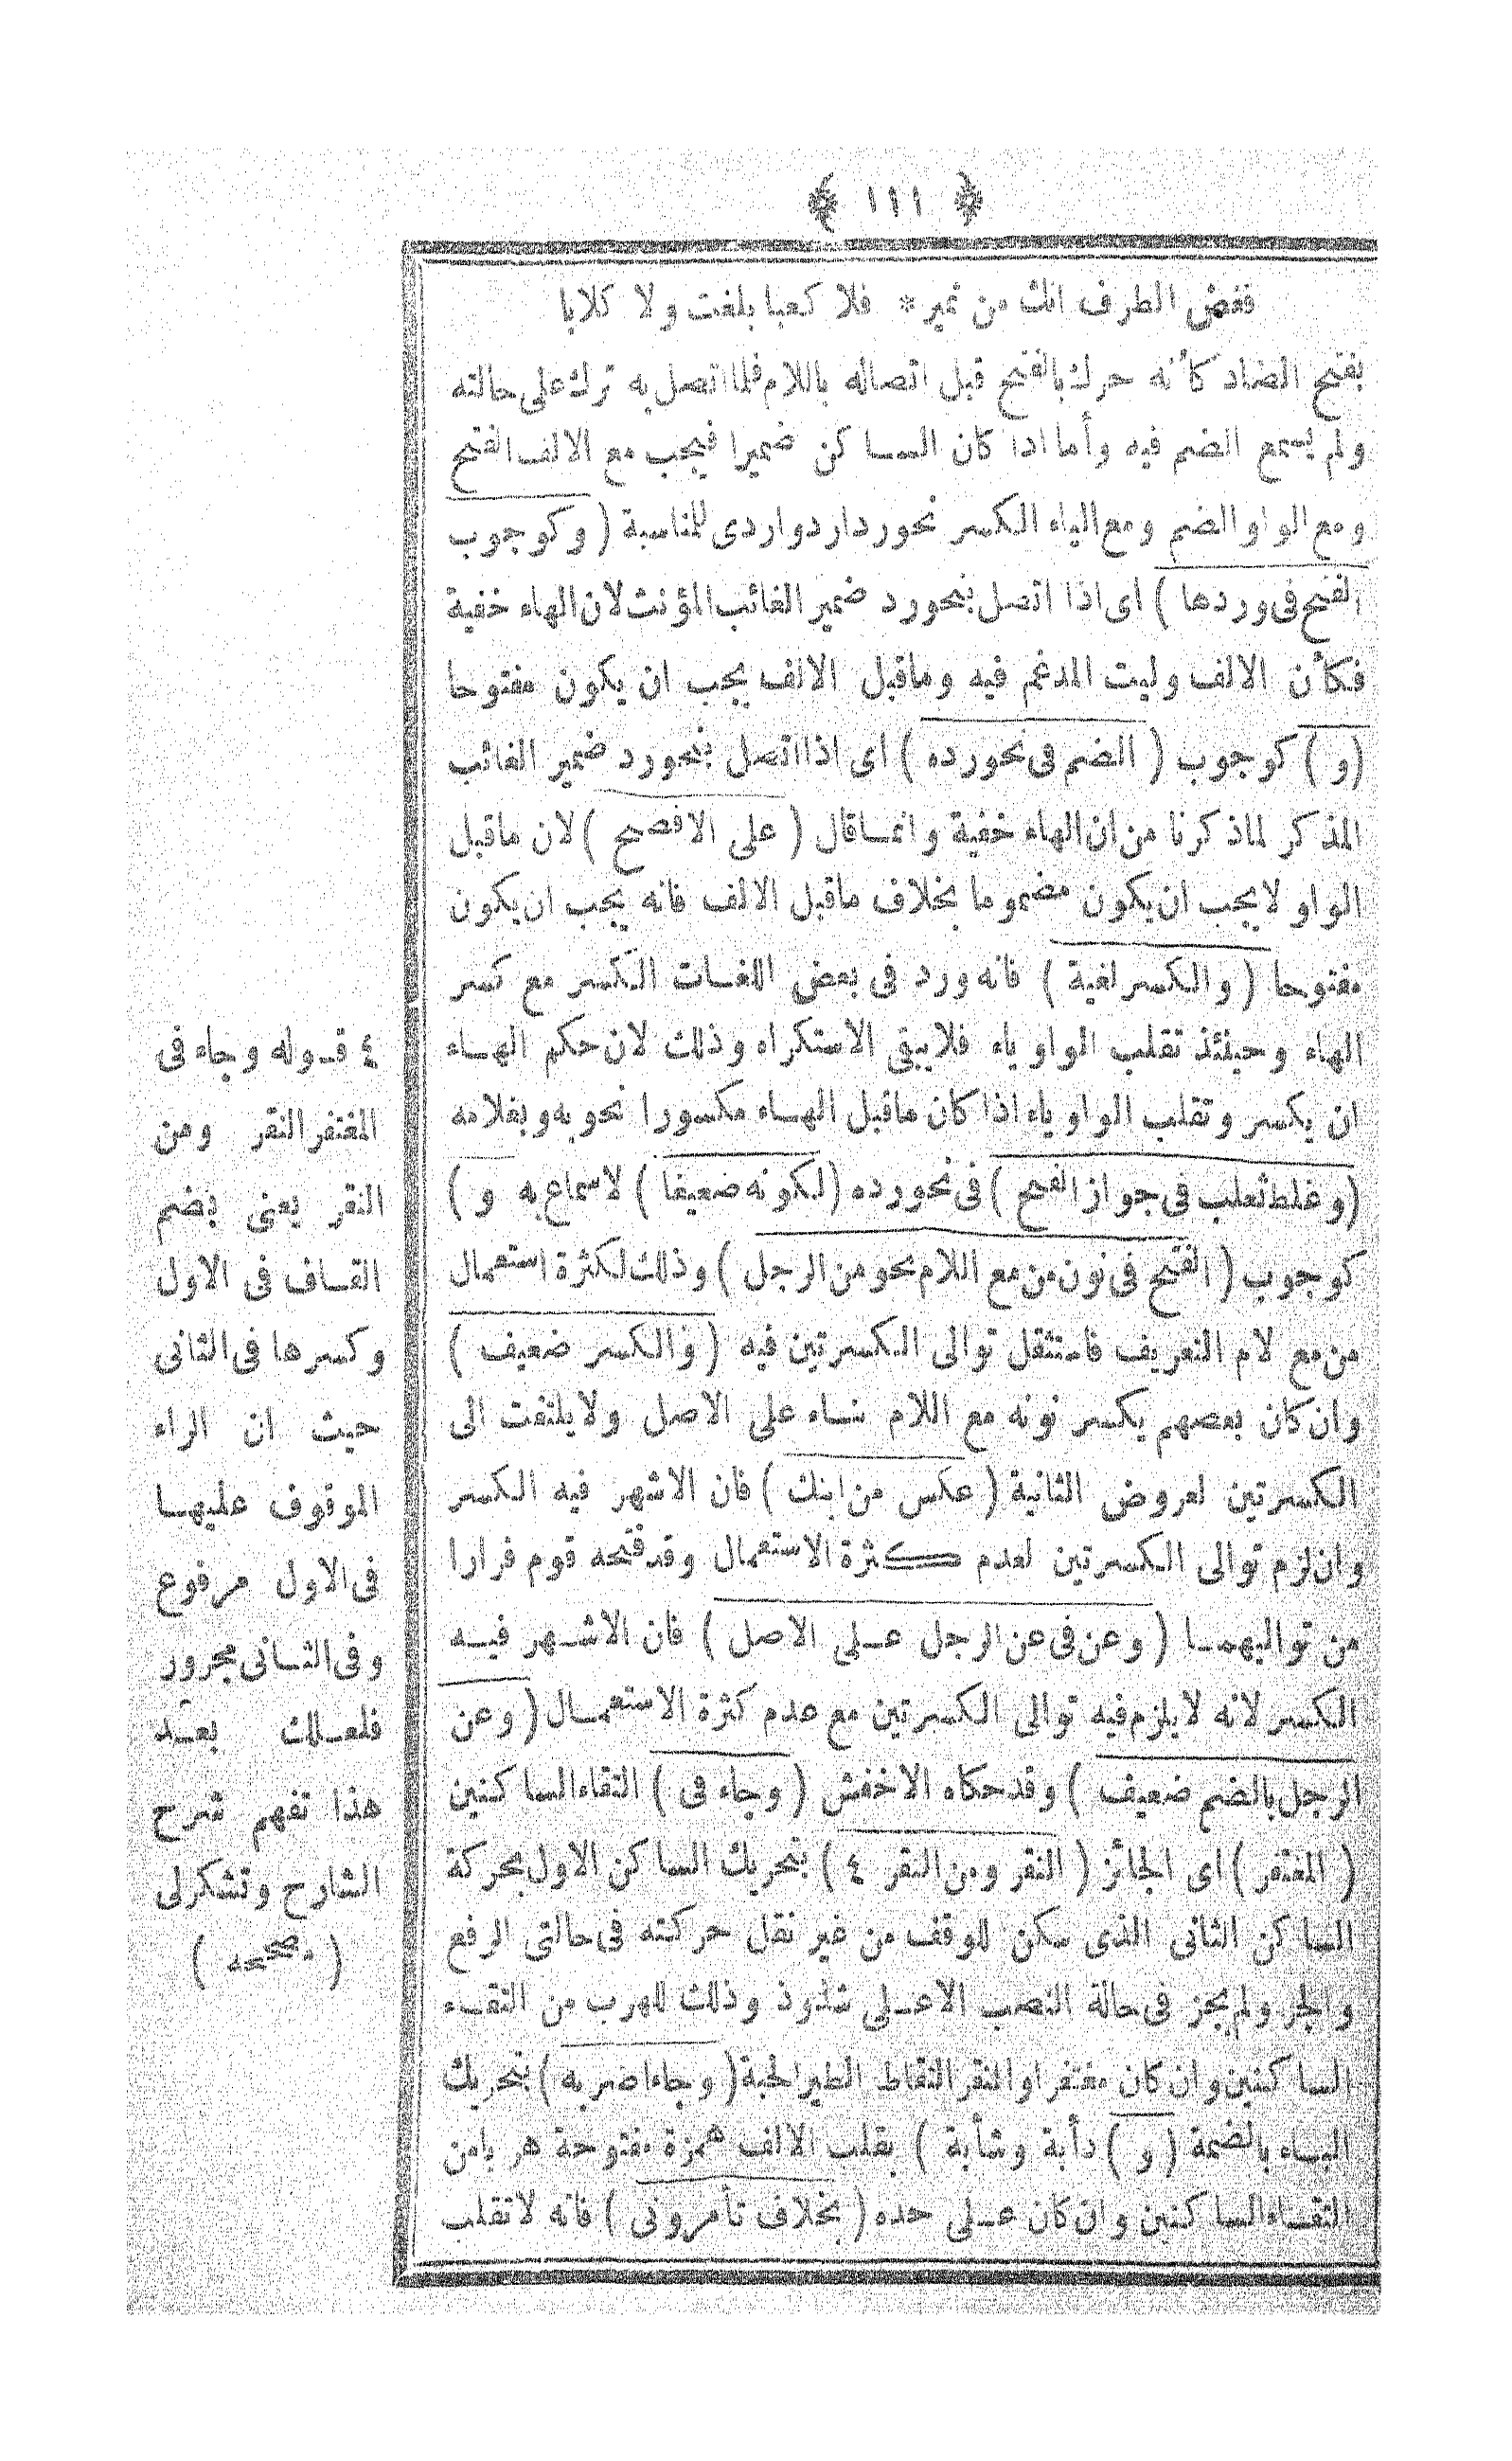 ﴿ ١١١ ﴾
فغض الطرف انك من نمير * فلا كعبا بلغت ولا كلابا
بفتح الضاد كأنه حرك بالفتح قبل اتصاله باللام فلما اتصل به ترك على حالته
ولم يسمع الضم فيه وأما اذا كان الساكن ضميرا فيجب مع الالف الفتح
ومع الواو الضم ومع الياء الكسر نحو ردا ردوا ردى للمناسبة ( وكوجوب
الفتح فى وردها ) اى اذا اتصل بنحو رد ضمير الغائب المؤنث لان الهاء خفية
فكأن الالف وليت المدغم فيه وماقبل الالف يجب ان يكون مفتوحا
(و ) كوجوب ( الضم فى نحو رده ) اى اذا اتصل بنحو رد ضمير الغائب
المذكر لماذكرنا من ان الهاء خفية وانما قال ( على الافصح ) لان ماقبل
الواو لايجب ان يكون مضموما بخلاف ماقبل الالف فانه يجب ان يكون
مفتوحا ( والكسر لغية ) فانه ورد فى بعض اللغات الكسر مع كسر
الهاء وحينئذ تقلب الواو ياء فلايبقى الاستكراه وذلك لان حكم الهاء
ان يكسر وتقلب الواو ياء اذا كان ماقبل الهاء مكسورا نحو به وبغلامه
(وغلط ثعلب فى جواز الفتح ) فى نحو رده (لكونه ضعيفا ) لاسماع به و )
كوجوب ( الفتح فى نون من مع اللام نحو من الرجل ) وذلك لكثرة استعمال
من مع لام التعريف فاستثقل توالى الكسرتين فيه ( والكسر ضعيف )
وان كان بعضهم يكسر نونه مع اللام بناء على الاصل ولايلتفت الى
الكسرتين لعروض الثانية ( عكس من ابنك ) فان الاشهر فيه الكسر
وان لزم توالى الكسرتين لعدم كثرة الاستعمال وقد فتحه قوم فرارا
من تواليهما ( وعن فى عن الرجل على الاصل ) فان الاشهر فيه
الكسر لانه لايلزم فيه توالى الكسرتين مع عدم كثرة الاستعمال ( وعن
الرجل بالضم ضعيف ) وقد حكاه الاخفش ( وجاء فى ) التقاء الساكنين
( المغتفر ) اى الجائز ( النقر ومن النقر ٤ ) بتحريك الساكن الاول بحركة
الساكن الثانى الذى سكن للوقف من غير نقل حركته فى حالتى الرفع
والجر ولم يجز فى حالة النصب الاعلى شذوذ وذلك للهرب من التقاء
الساكنين وان كان مغتفرا والنقر التقاط الطير الحبة ( وجاء اضربه ) بتحريك
الباء بالضمة ( و ) دأبة وشأبة ) بقلب الالف همزة مفتوحة هربا من
التقاء الساكنين وان كان على حده ( بخلاف تأمرونى ) فانه لاتقلب
٤ قوله وجاء فى
المغتفر النقر ومن
النقر يعنى بضم
القاف فى الاول
وكسرها فى الثانى
حيث ان الراء
الموقوف عليها
فى الاول مرفوع
وفى الثانى مجرور
فلعلك بعد
هذا تفهم شرح
الشارح وتشكرلى
( مصححه )